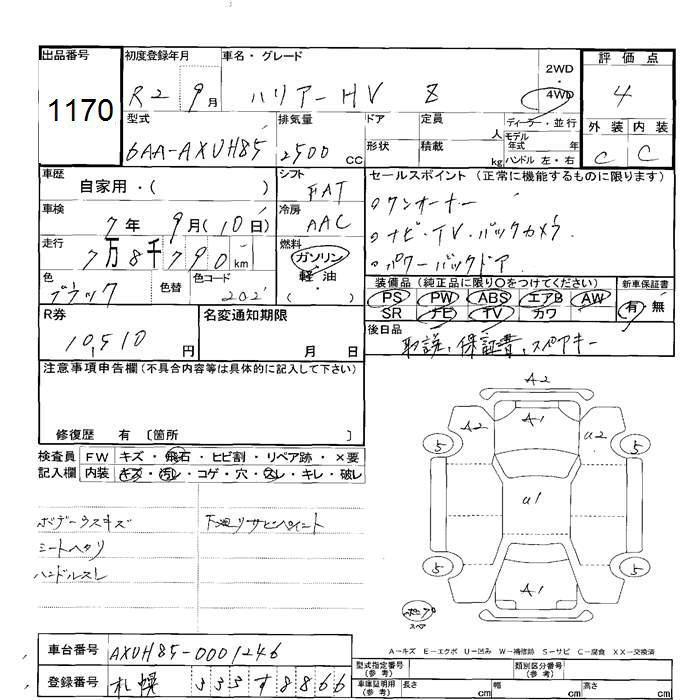 出品番号
1170
初度登録年月
R2 9月
車名・グレード
ハリアーHV Z
2WD
4WD
評価点
4
外装 内装
C C
型式
6AA-AXUH85
排気量
2500 CC
ドア
形状
定員 人
積載 kg
ディーラー・並行
モデル年式 年
ハンドル 左・右
車歴
自家用・( )
シフト
FAT
車検
7年 9月(10日)
冷房
AAC
走行
7万8千790km
燃料
ガソリン・軽油
( )
色
ブラック
色替
色コード
202
セールスポイント (正常に機能するものに限ります)
・ワンオーナー
・ナビ・TV・バックカメラ
・パワーバックドア
装備品 (純正品に限り○をつけてください)
PS PW ABS エアB AW
SR ナビ TV カワ
新車保証書
有・無
R券
10,510円
名変通知期限
月 日
後日品
取説、保証書、スペアキー
注意事項申告欄 (不具合内容等は具体的に記入して下さい)
修復歴 有 〔箇所 〕
検査員記入欄
FW キズ・飛石・ヒビ割・リペア跡・×要
内装 キズ・汚レ・コゲ・穴・スレ・キレ・破レ
ボデーウスキズ
シートヘタリ
ハンドルスレ
下廻りサビペイント
A2
A1
A2
U2
5
5
U1
5
5
A1
スペア
A-キズ E-エクボ U-凹み W-補修跡 S-サビ C-腐食 XX-交換済
車台番号
AXUH85-0001246
登録番号
札幌 335す8866
型式指定番号(参考)
類別区分番号(参考)
車庫証明用(参考)
長さ cm
幅 cm
高さ cm